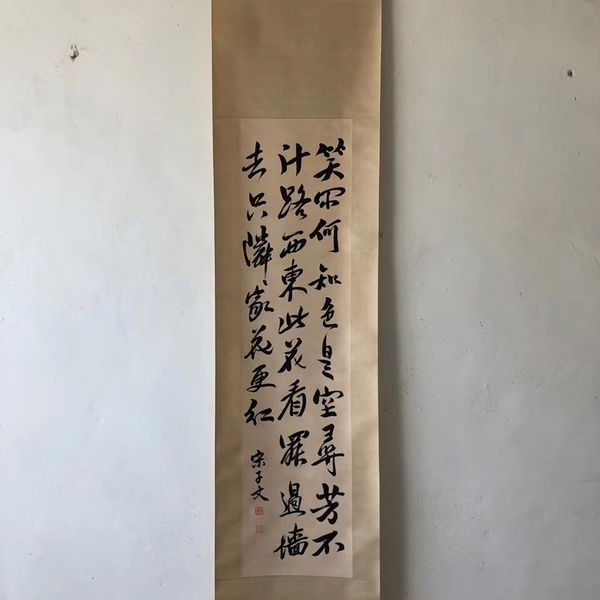 笑罕何知色是空尋芳不
计路西東此花看罷過墻
去只隣家花更紅
宋子文